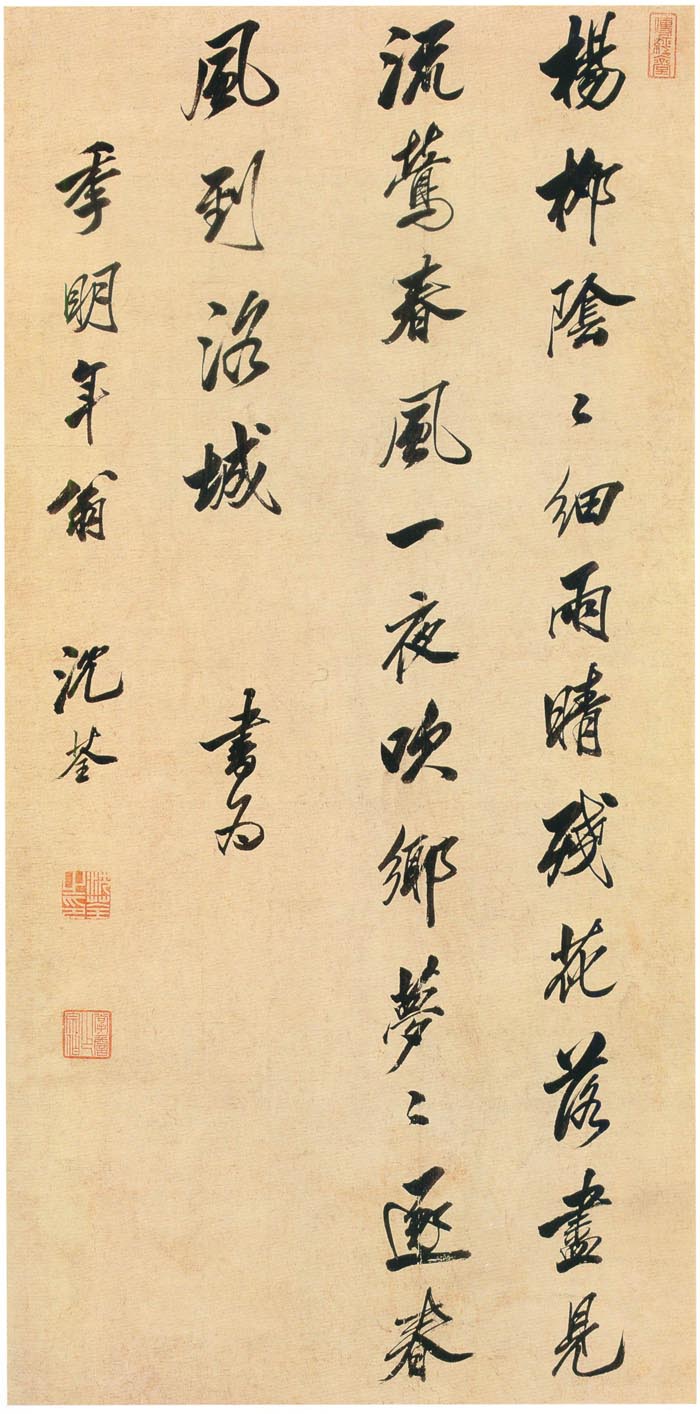 楊柳陰〻細雨晴殘花落盡見
流鶯春風一夜吹鄉夢〻逐春
風到洛城 書爲
季明年翁 沈荃
沈荃之印